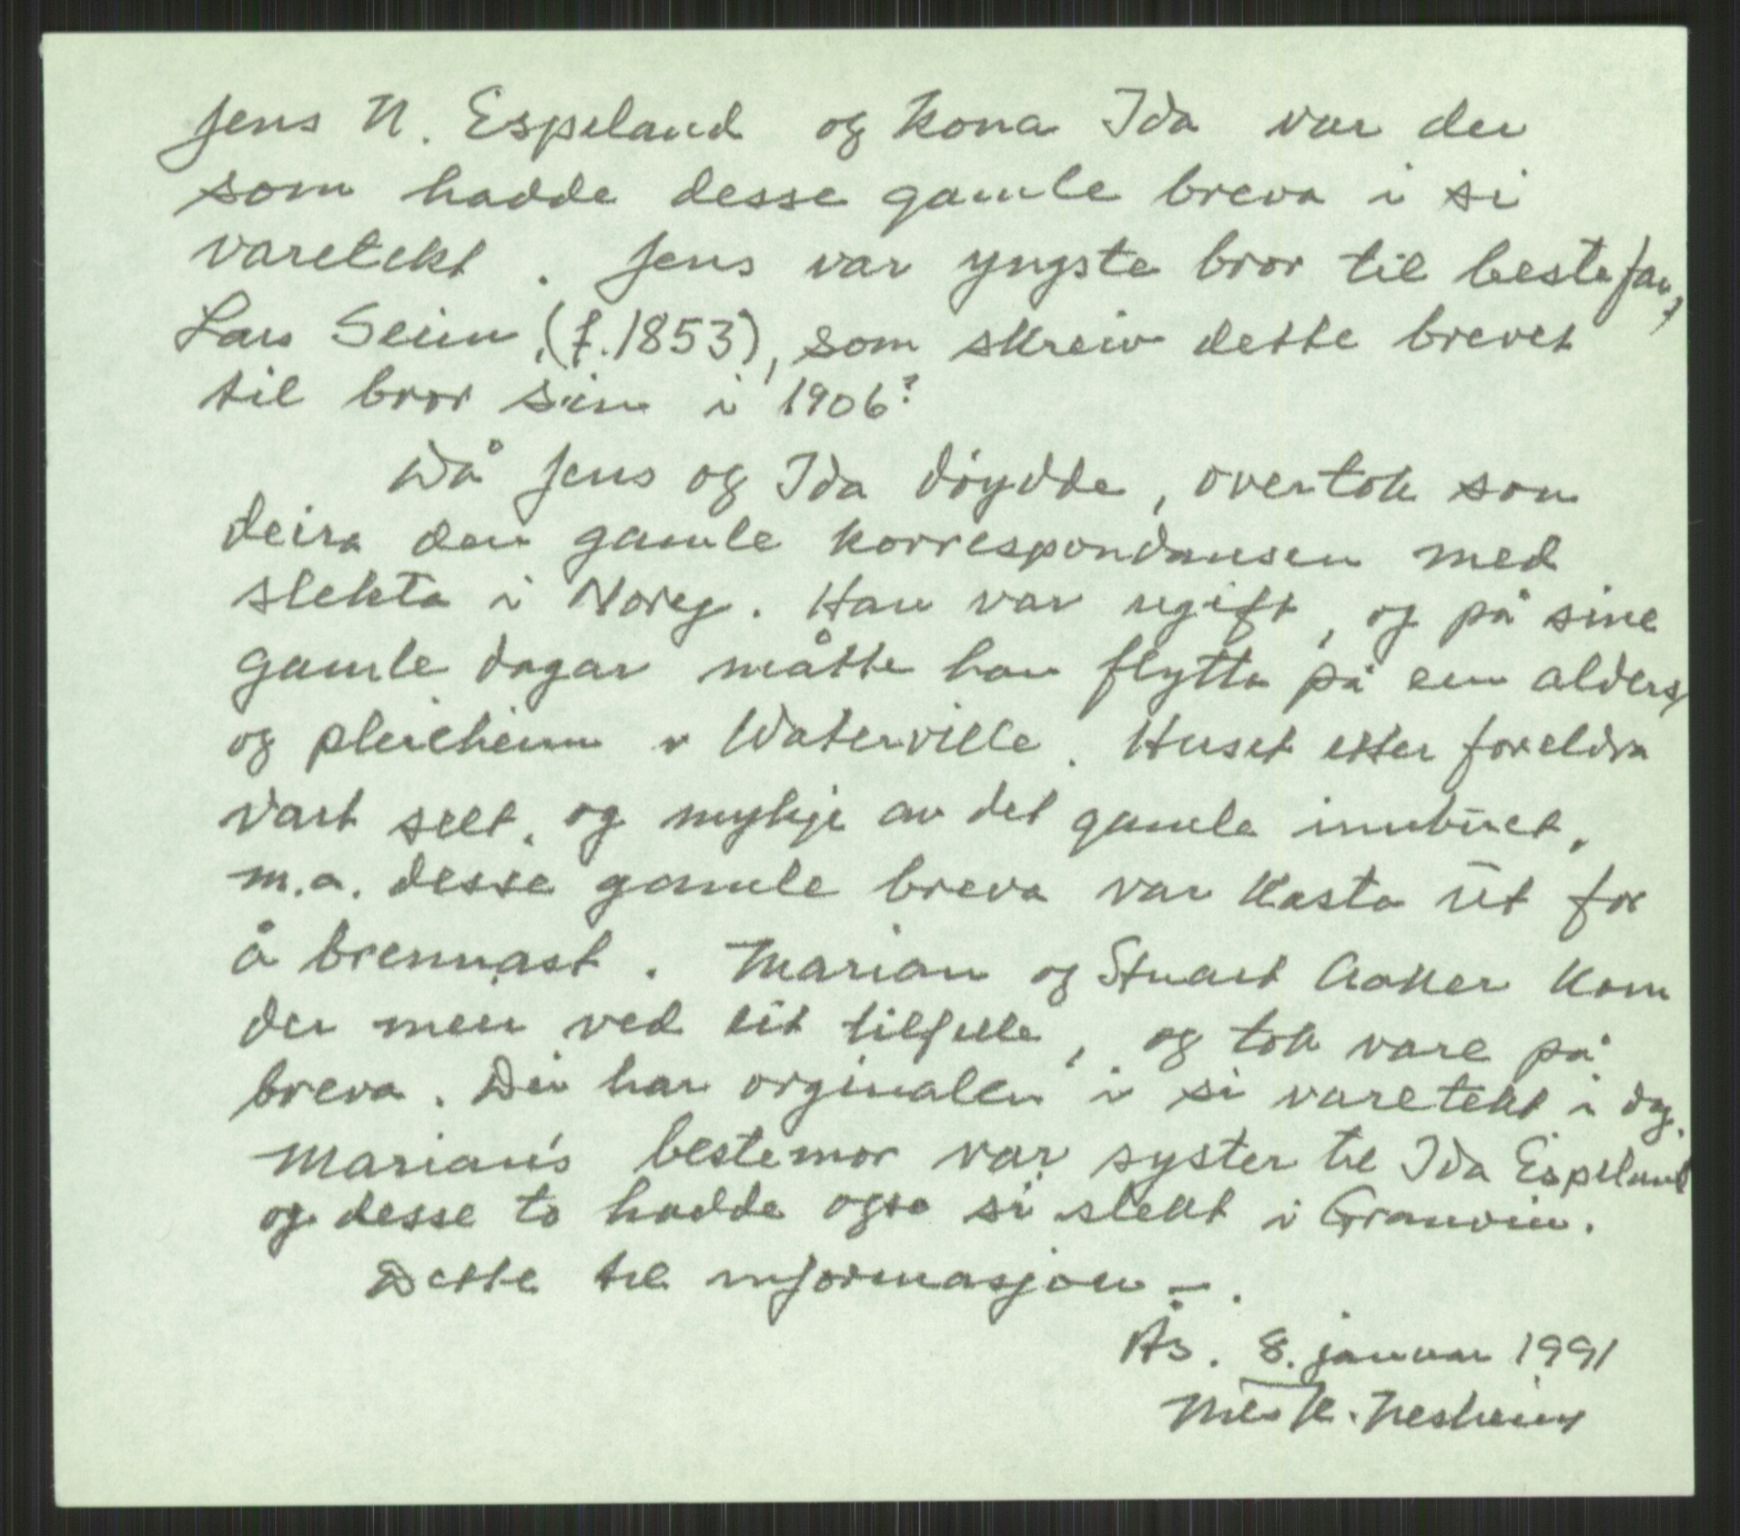 Jens N. Espeland og kona Ida var dei
som hadde desse gamle breva i si
varetekt. Jens var yngste bror til bestefar,
Lars Seim, (f. 1853), som skreiv dette brevet
til bror sin i 1906?
Då Jens og Ida døydde, overtok son
deira den gamle korrespondansen med
slekta i Noreg. Han var ugift, og på sine
gamle dagar måtte han flytta på ein alders
og pleieheim i Waterville. Huset etter foreldra
vart selt, og mykje av det gamle innbuet,
m.a. desse gamle breva var kasta ut for
å brennast. Marian og Stuart Aaker kom
der meir ved eit tilfelle, og tok vare på
breva. Dei har orginalen i si varetekt i dag.
Marian's bestemor var syster til Ida Espeland
og desse to hadde også si slekt i Granvin.
Dette til informasjon –.
Ås. 8. januar 1991
Nils K. Nesheim